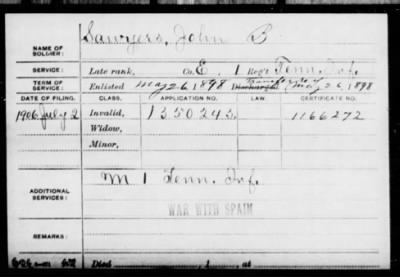 NAME OF SOLDIER: Sawyers, John B
SERVICE: Late rank, Co. E, 1 Reg't Tenn. Inf.
TERM OF SERVICE: Enlisted May 26 1898 Discharged May 26, 1898
DATE OF FILING. CLASS. APPLICATION NO. LAW. CERTIFICATE NO.
1906 July 2 Invalid, 1350243. 1166272
Widow,
Minor,
ADDITIONAL SERVICES: M 1 Tenn. Inf.
WAR WITH SPAIN
REMARKS:
Died 1 , at